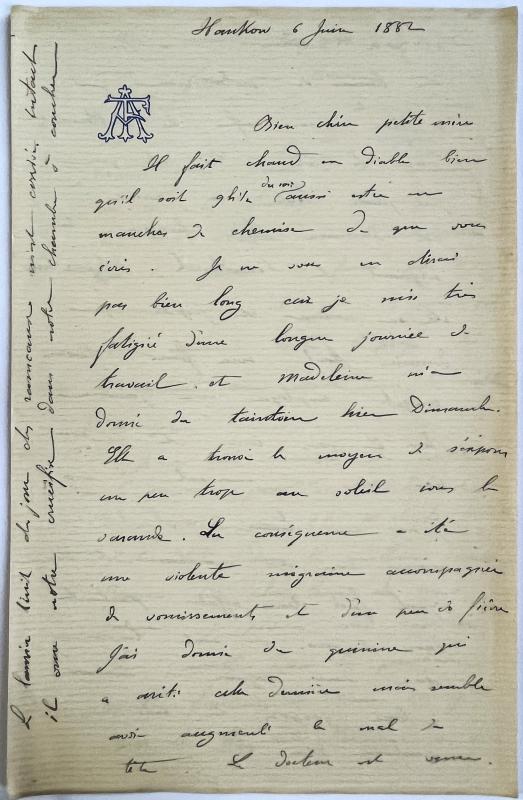 Hankow 6 Juin 1882
AF
Bien chère petite mère
Il fait chaud en diable bien
qu'il soit 9h½ du soir aussi est-ce en
manches de chemise que je vous
écris. Je ne vous en dirai
pas bien long car je suis très
fatigué d'une longue journée de
travail et Madeleine m'a
donné du tintouin hier Dimanche.
Elle a trouvé le moyen de s'exposer
un peu trop au soleil sous la
varanda. La conséquence a été
une violente migraine accompagnée
de vomissements et d'un peu de fièvre
J'ai donné de quinine qui
a arrêté cette dernière mais semble
avoir augmenté le mal de
tête Le docteur est venu.
Le buis du jour des rameaux est intact
il orne notre crucifix dans notre chambre à coucher